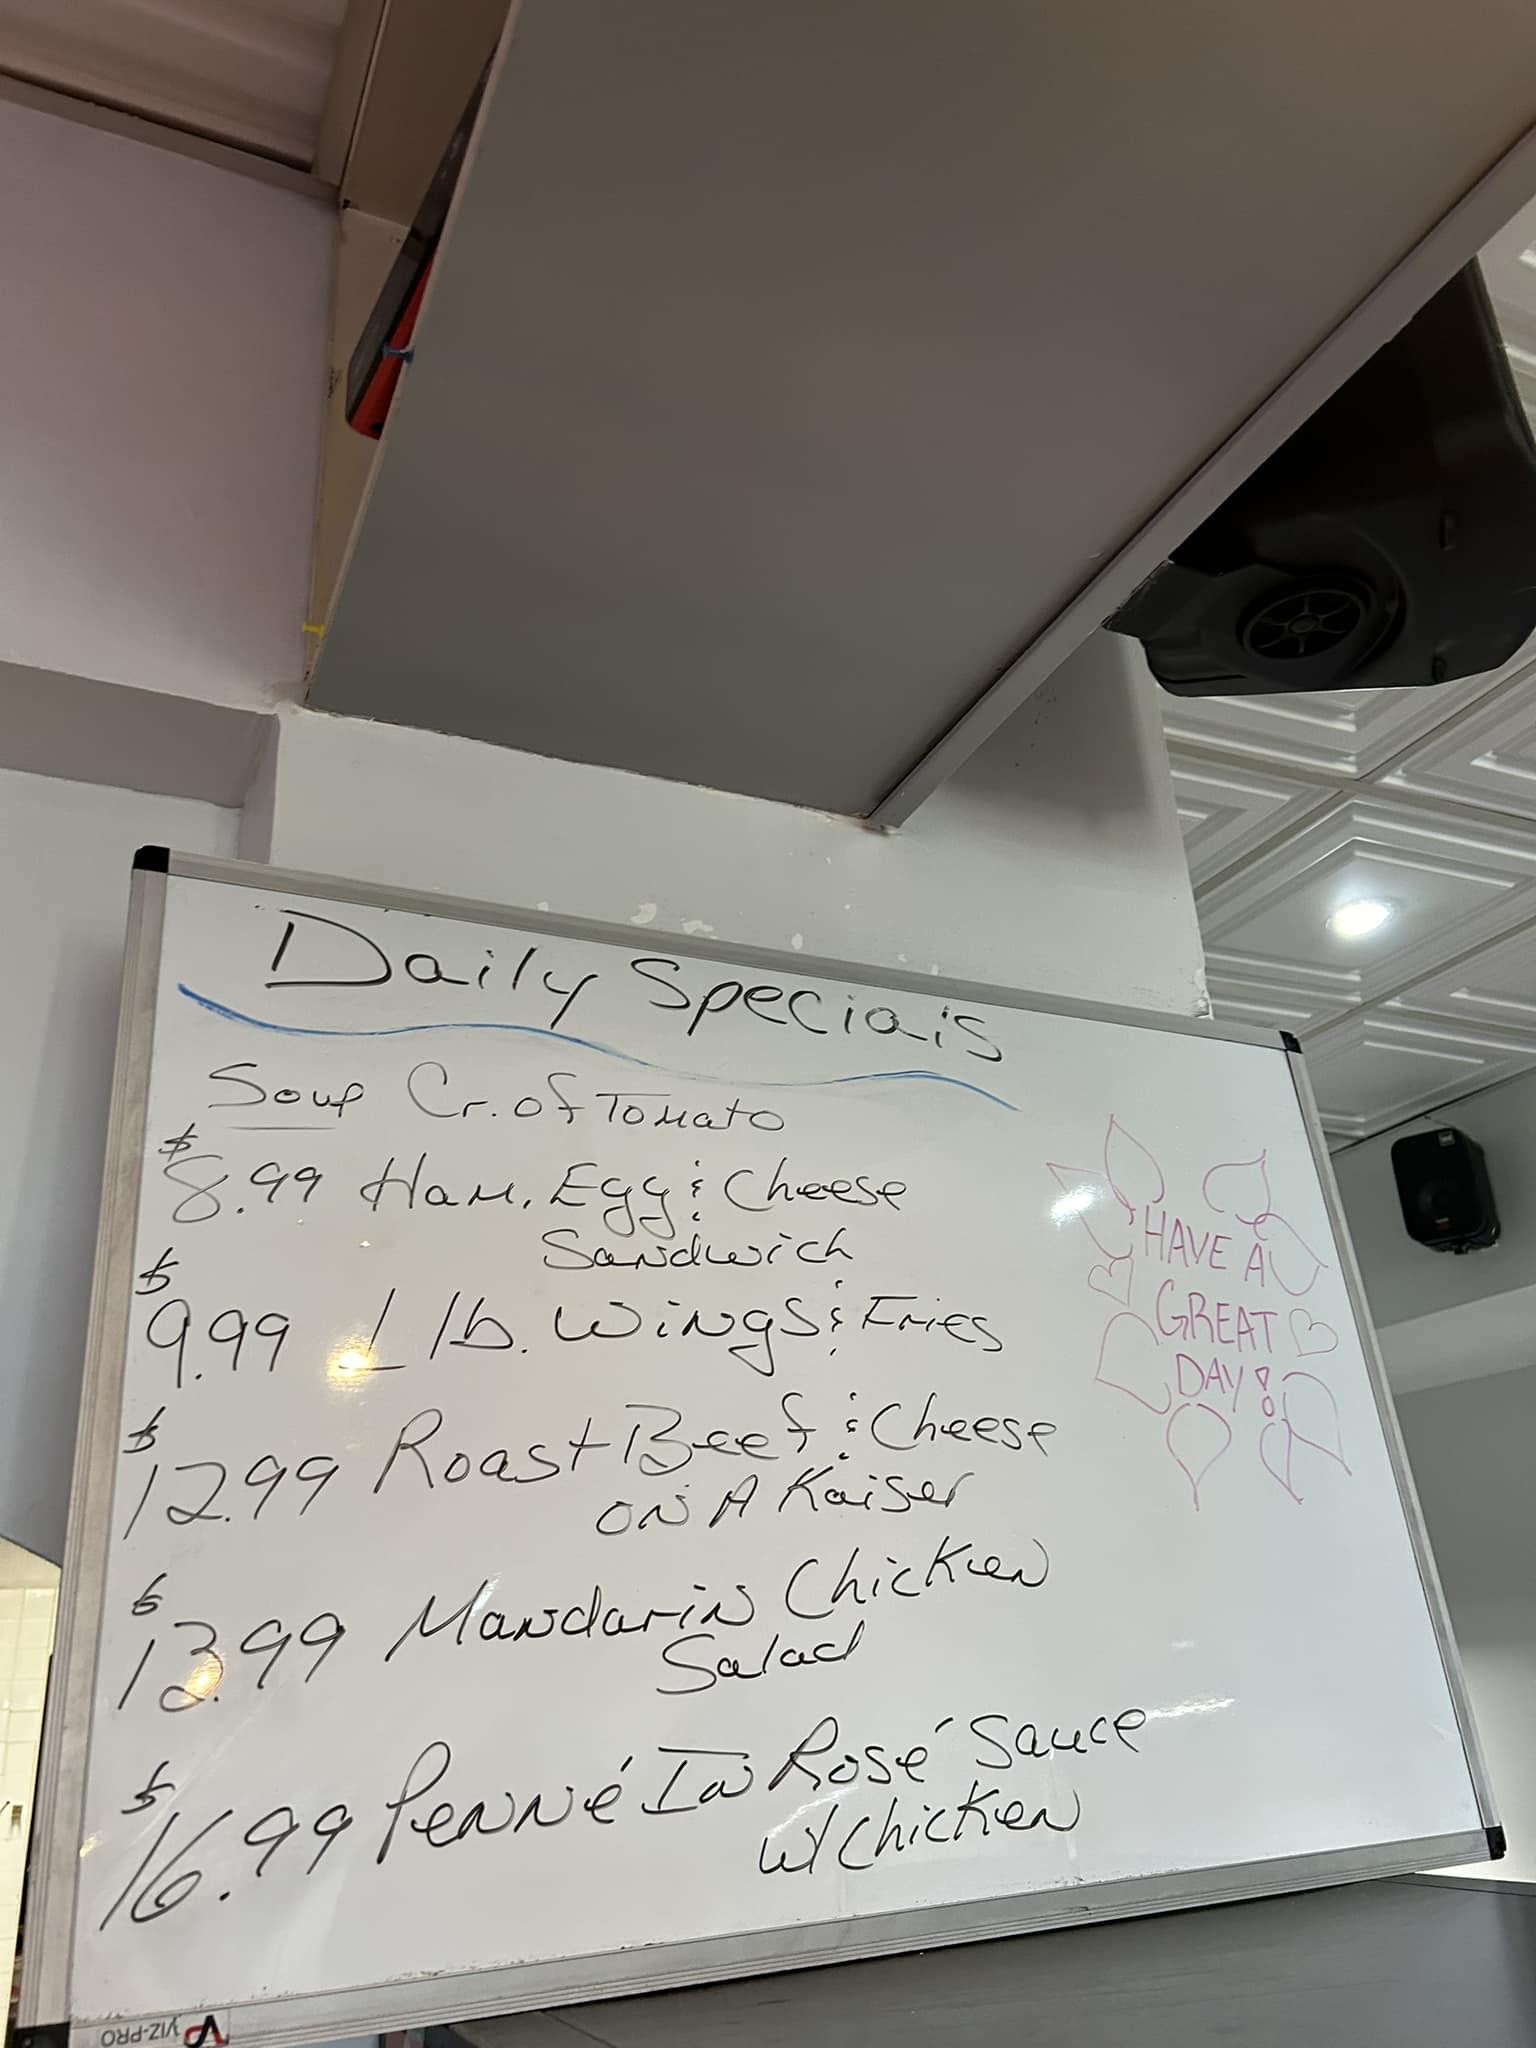 Daily Specials
Soup Cr. of Tomato
$8.99 Ham, Egg & Cheese
Sandwich
$9.99 1 lb. Wings & Fries
$12.99 Roast Beef & Cheese
on A Kaiser
$13.99 Mandarin Chicken
Salad
$16.99 Penné In Rosé Sauce
w/ Chicken
HAVE A
GREAT
DAY!
VIZ-PRO